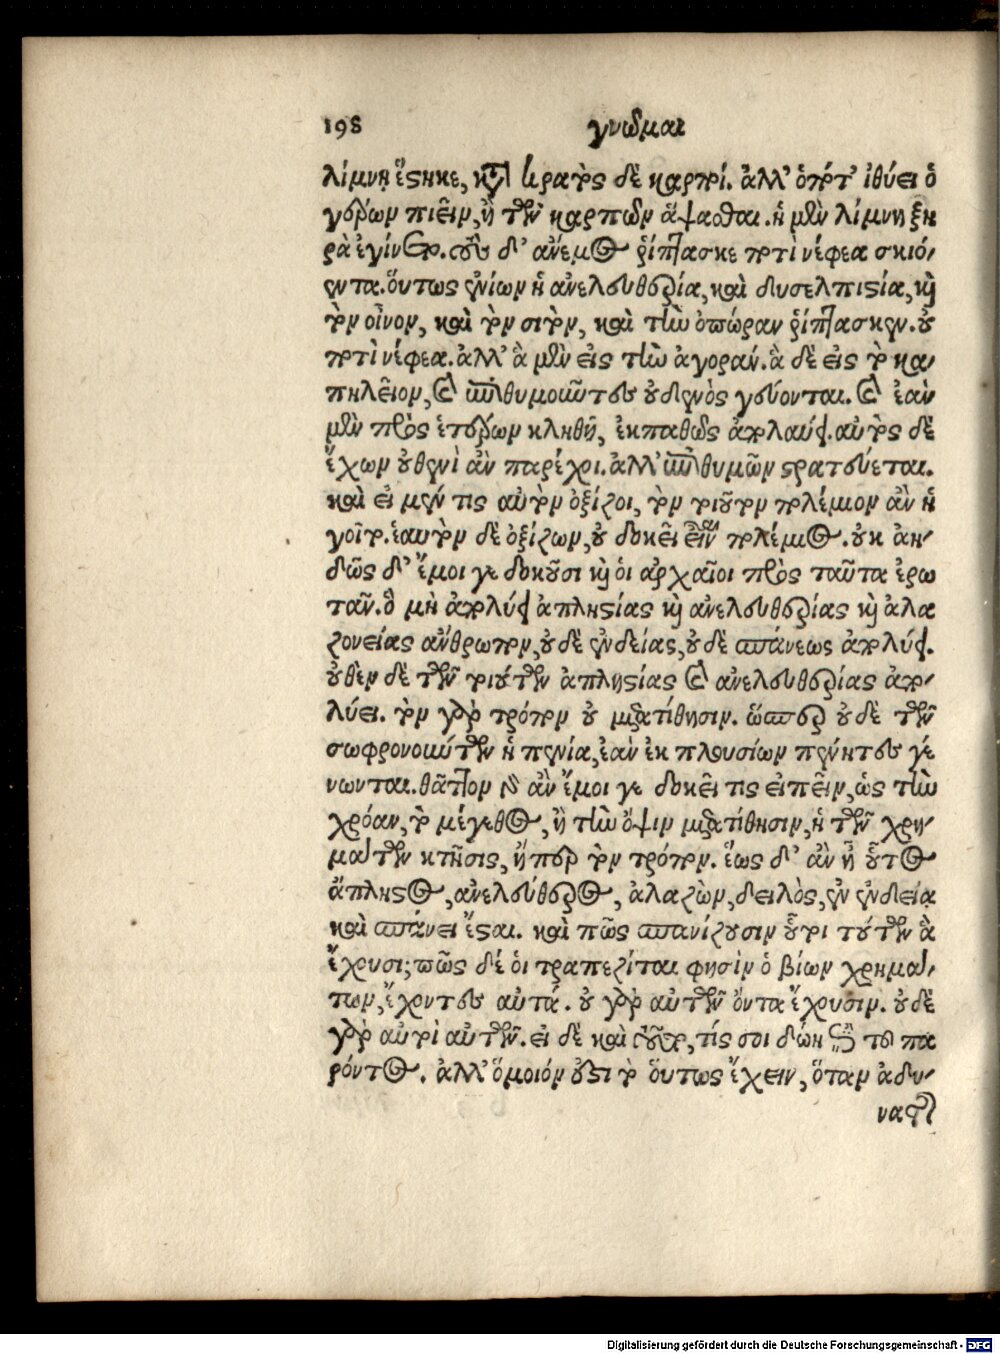 198 γνῶμαι
λίμνῃ ἕστηκε, κατὰ κρατὸς δὲ καρποί. ἀλλ' ὁπότ' ἰθύει ὁ
γέρων πιεῖν, ἢ τῶν καρπῶν ἅψασθαι. ἡ μὲν λίμνη ξη
ρὰ ἐγίνετο. τοὺς δ' ἄνεμος ῥίπτασκε ποτὶ νέφεα σκιό-
εντα. οὕτως ἐνίων ἡ ἀνελευθερία, καὶ δυσελπιστία, καὶ
τὸν οἶνον, καὶ τὸν σιτον, καὶ τὴν ὀπώραν ῥίπτασκεν. οὐ
ποτὶ νέφεα. ἀλλ' ἃ μὲν εἰς τὴν ἀγοράν. ἃ δὲ εἰς τὸ κα-
πηλεῖον, καὶ ἐπιθυμοῦντες οὐδενὸς γεύονται. καὶ ἐὰν
μὲν πρὸς ἑτέρων κληθῇ, ἐκπαθῶς ἀπολαύει. αὐτὸς δὲ
ἔχων οὐθενὶ ἂν παρέχοι. ἀλλ' ἐπιθυμῶν στρατεύεται.
καὶ εἰ μέν τις αὐτὸν ὀξίζοι, τὸν τοιοῦτον πολέμιον ἂν ἡ
γοῖτο. ἑαυτὸν δὲ ὀξίζων, οὐ δοκεῖ εἶναι πολέμιος. οὐκ ἀη-
δῶς δ' ἔμοι γε δοκοῦσι καὶ οἱ ἀρχαῖοι πρὸς ταῦτα ἐρω
τᾶν. ὃ μὴ ἀπολύει ἀπληστίας καὶ ἀνελευθερίας καὶ ἀλα
ζονείας ἄνθρωπον, οὐδὲ ἐνδείας, οὐδὲ σπάνεως ἀπολύει.
οὐθὲν δὲ τῶν τοιούτων ἀπληστίας καὶ ἀνελευθερίας ἀπο-
λύει. τὸν γὰρ τρόπον οὐ μετατίθησιν. ὥσπερ οὐδὲ τῶν
σωφρονούντων ἡ πενία, ἐὰν ἐκ πλουσίων πένητες γέ
νωνται. θᾶττον δ' ἂν ἔμοι γε δοκεῖ τις εἰπεῖν, ὡς τὴν
χρόαν, τὸ μέγεθος, ἢ τὴν ὄψιν μετατίθησιν, ἡ τῶν χρη-
μάτων κτῆσις, ἤπερ τὸν τρόπον. ἕως δ' ἂν ᾖ οὗτος
ἄπληστος, ἀνελεύθερος, ἀλαζὼν, δειλὸς, ἐν ἐνδείᾳ
καὶ σπάνει ἔσται. καὶ πῶς σπανίζουσιν οὗτοι τούτων ἃ
ἔχουσι; πῶς δέ οἱ τραπεζίται φησὶν ὁ βίων χρημά-
των, ἔχοντες αὐτά. οὐ γὰρ αὐτῶν ὄντα ἔχουσιν. οὐδὲ
γὰρ αὐτοὶ αὐτῶν. εἰ δὲ καὶ τοῦτο, τίς σοι δώη τοῦ πα
ρόντος. ἀλλ' ὅμοιόν ἐστι τὸ οὕτως ἔχειν, ὅταν ἀδυ-
νατῇ
Digitalisierung gefördert durch die Deutsche Forschungsgemeinschaft - DFG